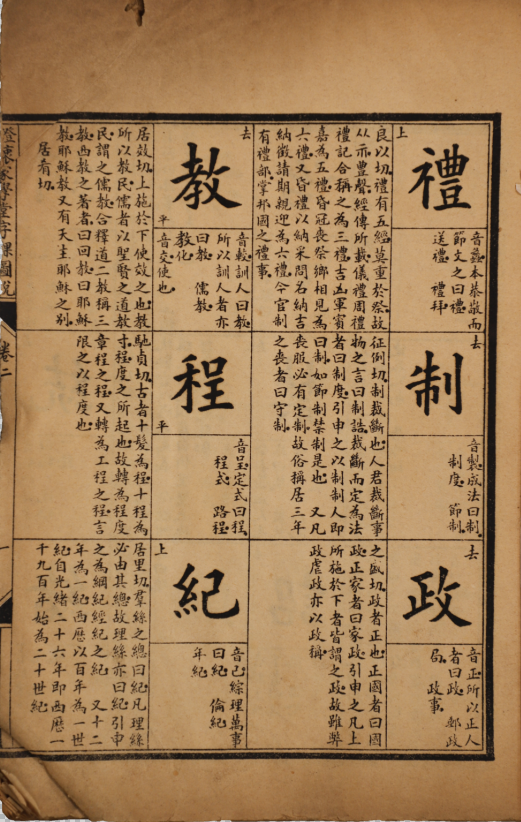 上
禮
音蠡本恭敬而
節文之曰禮
送禮 禮拜
良以切禮有五經莫重於祭故
从示豊聲經傳所載儀禮周禮
禮記合稱之為三禮吉凶軍賓
嘉為五禮昏冠喪祭鄉相見為
六禮又昏禮以納采問名納吉
納徵請期親迎為六禮今官制
有禮部掌邦國之禮事
去
制
音製成法曰制
制度 節制
征例切制裁斷也人君裁斷事
物之言曰制誥裁斷而定為法
者曰制度引申之以制制人即
曰制如節制禁制是也 又凡
喪服必有定制故俗稱居三年
之喪者曰守制
去
政
音正所以正人
者曰政 郵政
局 政事
之盛切政者正也正國者曰國
政正家者曰家政引申之凡上
所施於下者皆謂之政故雖弊
政虐政亦以政稱
去
教
平
音較訓人曰教
所以訓人者亦
曰教 儒教
教化
音交使也
居效切上施於下使效之也教
所以教民儒者以聖賢之道教
民謂之儒教合釋道二教稱三
教西教之著者曰回教曰耶穌
教耶穌教又有天主耶穌之別
居肴切
程
平
音呈定式曰程
程式 路程
馳貞切古者十髮為程十程為
寸程度之所起也故轉為程度
章程之程又轉為工程之程言
限之以程度也
上
紀
音己綜理萬事
曰紀 倫紀
年紀
居里切羣絲之總曰紀凡理絲
必由其總故理絲亦曰紀引申
之為綱紀經紀之紀 又十二
年為一紀西曆以百年為一世
紀自光緒二十六年即西曆一
千九百年始為二十世紀
澄衷蒙學堂字課圖說
卷二